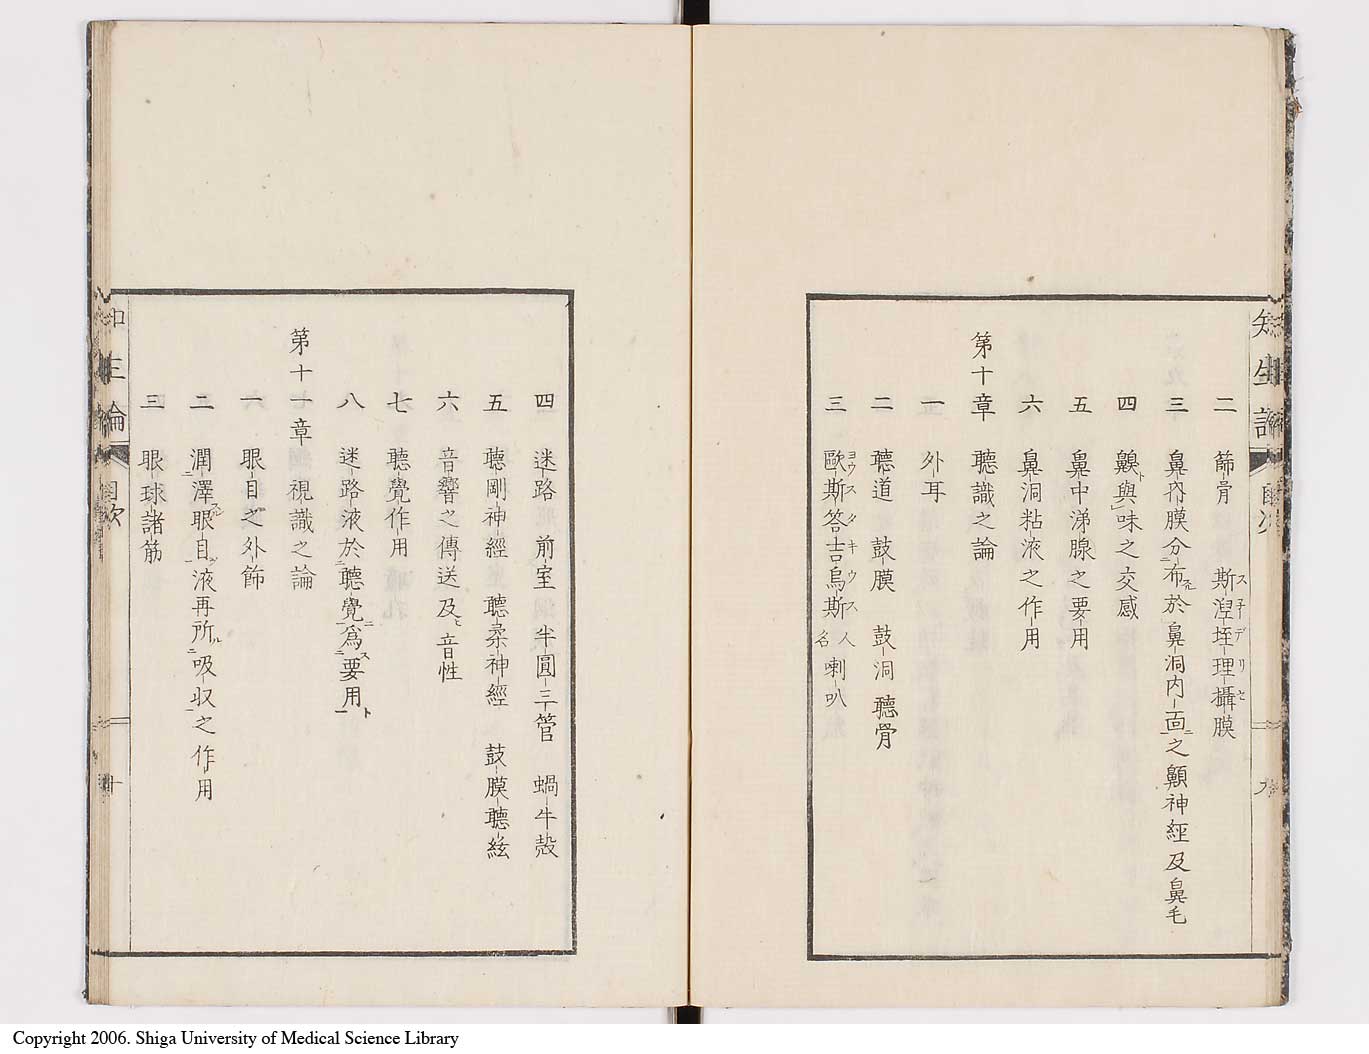 知生論 目次 九
二 篩骨 斯涅垤理攝膜
スネデリセ
三 鼻內膜分布於鼻洞内面之顱神經及鼻毛
四 齅與味之交感
五 鼻中涕腺之要用
六 鼻洞粘液之作用
第十章 聽識之論
一 外耳
二 聽道 鼓膜 鼓洞 聽骨
三 歐斯答吉烏斯人名喇叭
ヨウスタキウス
四 迷路前室 半圓三管 蝸牛殻
五 聽剛神經 聽柔神經 鼓膜聽絃
六 音響之傳送及音性
七 聽覺作用
八 迷路液於聽覺爲要用
第十一章 視識之論
一 眼目之外飾
二 潤澤眼目液再所吸収之作用
三 眼球諸筋
知生論 目次 十
Copyright 2006. Shiga University of Medical Science Library